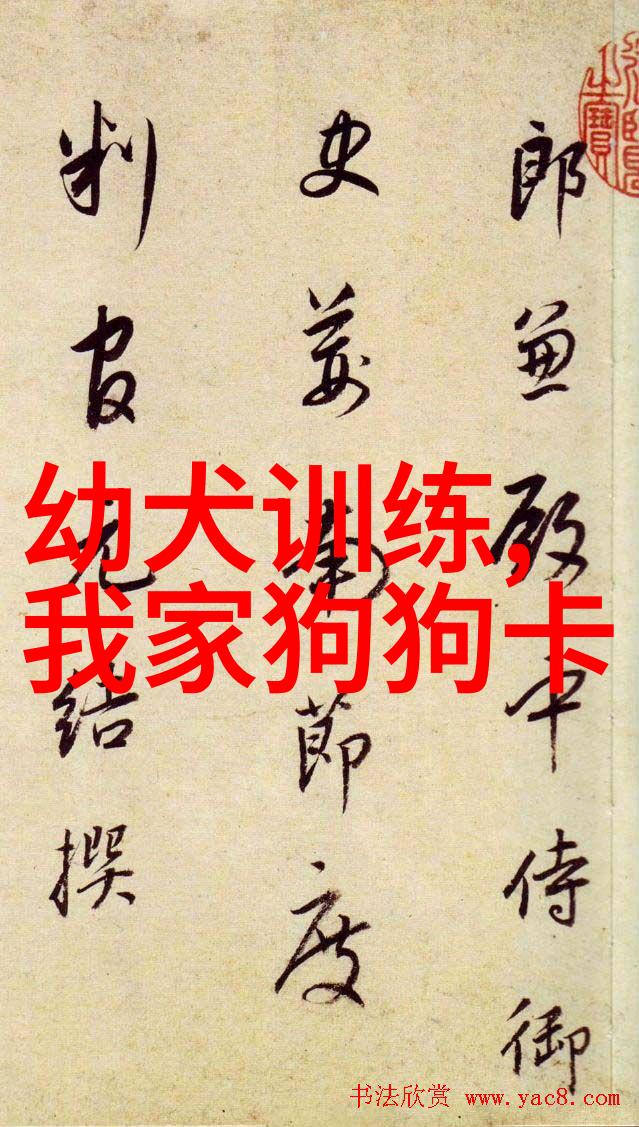 郎兼殿中侍御
史荆南節度
判官元结撰
幼犬训练,
我家狗狗卡
书法欣赏 www.yac8.com